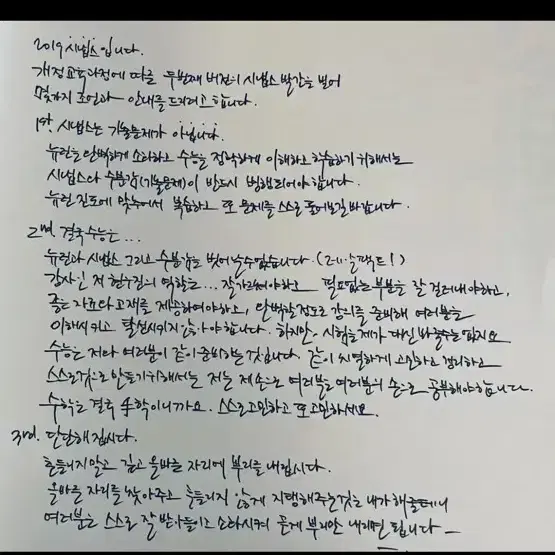 2019 시냅스입니다.
개정교육과정에 따른 두번째 버전의 시냅스 발간을 빌어
몇가지 조언과 안내를 드리려고 합니다.
1st. 시냅스는 기출문제가 아닙니다.
뉴런을 완벽하게 소화하고 수능을 정확하게 이해하고 학습하기 위해서는
시냅스와 수분감(기출문제)이 반드시 병행되어야 합니다.
뉴런 진도에 맞추어서 복습하고 또 문제를 스스로 풀어보길 바랍니다.
2nd. 결국 수능은...
뉴런과 시냅스 그리고 수분감을 벗어날 수 없습니다. (고난도 팩트!)
강사인 저 현우진의 역할은... 잘 가르쳐야하고 필요없는 부분을 잘 걸러내야하고,
좋은 자료와 교재를 제공하여야하고, 완벽할 정도로 강의를 준비해 여러분을
이해시키고 탈선시키지 않아야 합니다. 하지만, 시험을 제가 대신 봐줄 수는 없지요
수능은 저와 여러분이 같이 준비하는 것입니다. 같이 치열하게 고민하고 정리하고
스스로 것으로 만들기 위해서는 저는 제 손으로 여러분은 여러분의 손으로 공부해야 합니다.
수학은 결국 手학이니까요. 스스로 고민하고 또 고민하세요.
3rd. 단단해집시다.
흔들리지 말고 깊고 올바른 자리에 뿌리를 내립시다.
올바른 자리를 찾아주고 흔들리지 않게 지탱해주는 것은 내가 해줄테니
여러분은 스스로 잘 받아들이고 소화시켜 굳게 뿌리만 내리면 됩니다 —